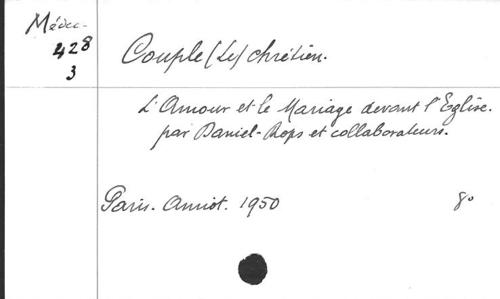 Médec-
428
3
Couple (Le) chrétien.
L'Amour et le Mariage devant l'Eglise.
par Daniel-Rops et collaborateurs.
Paris. Amiot. 1950
8°